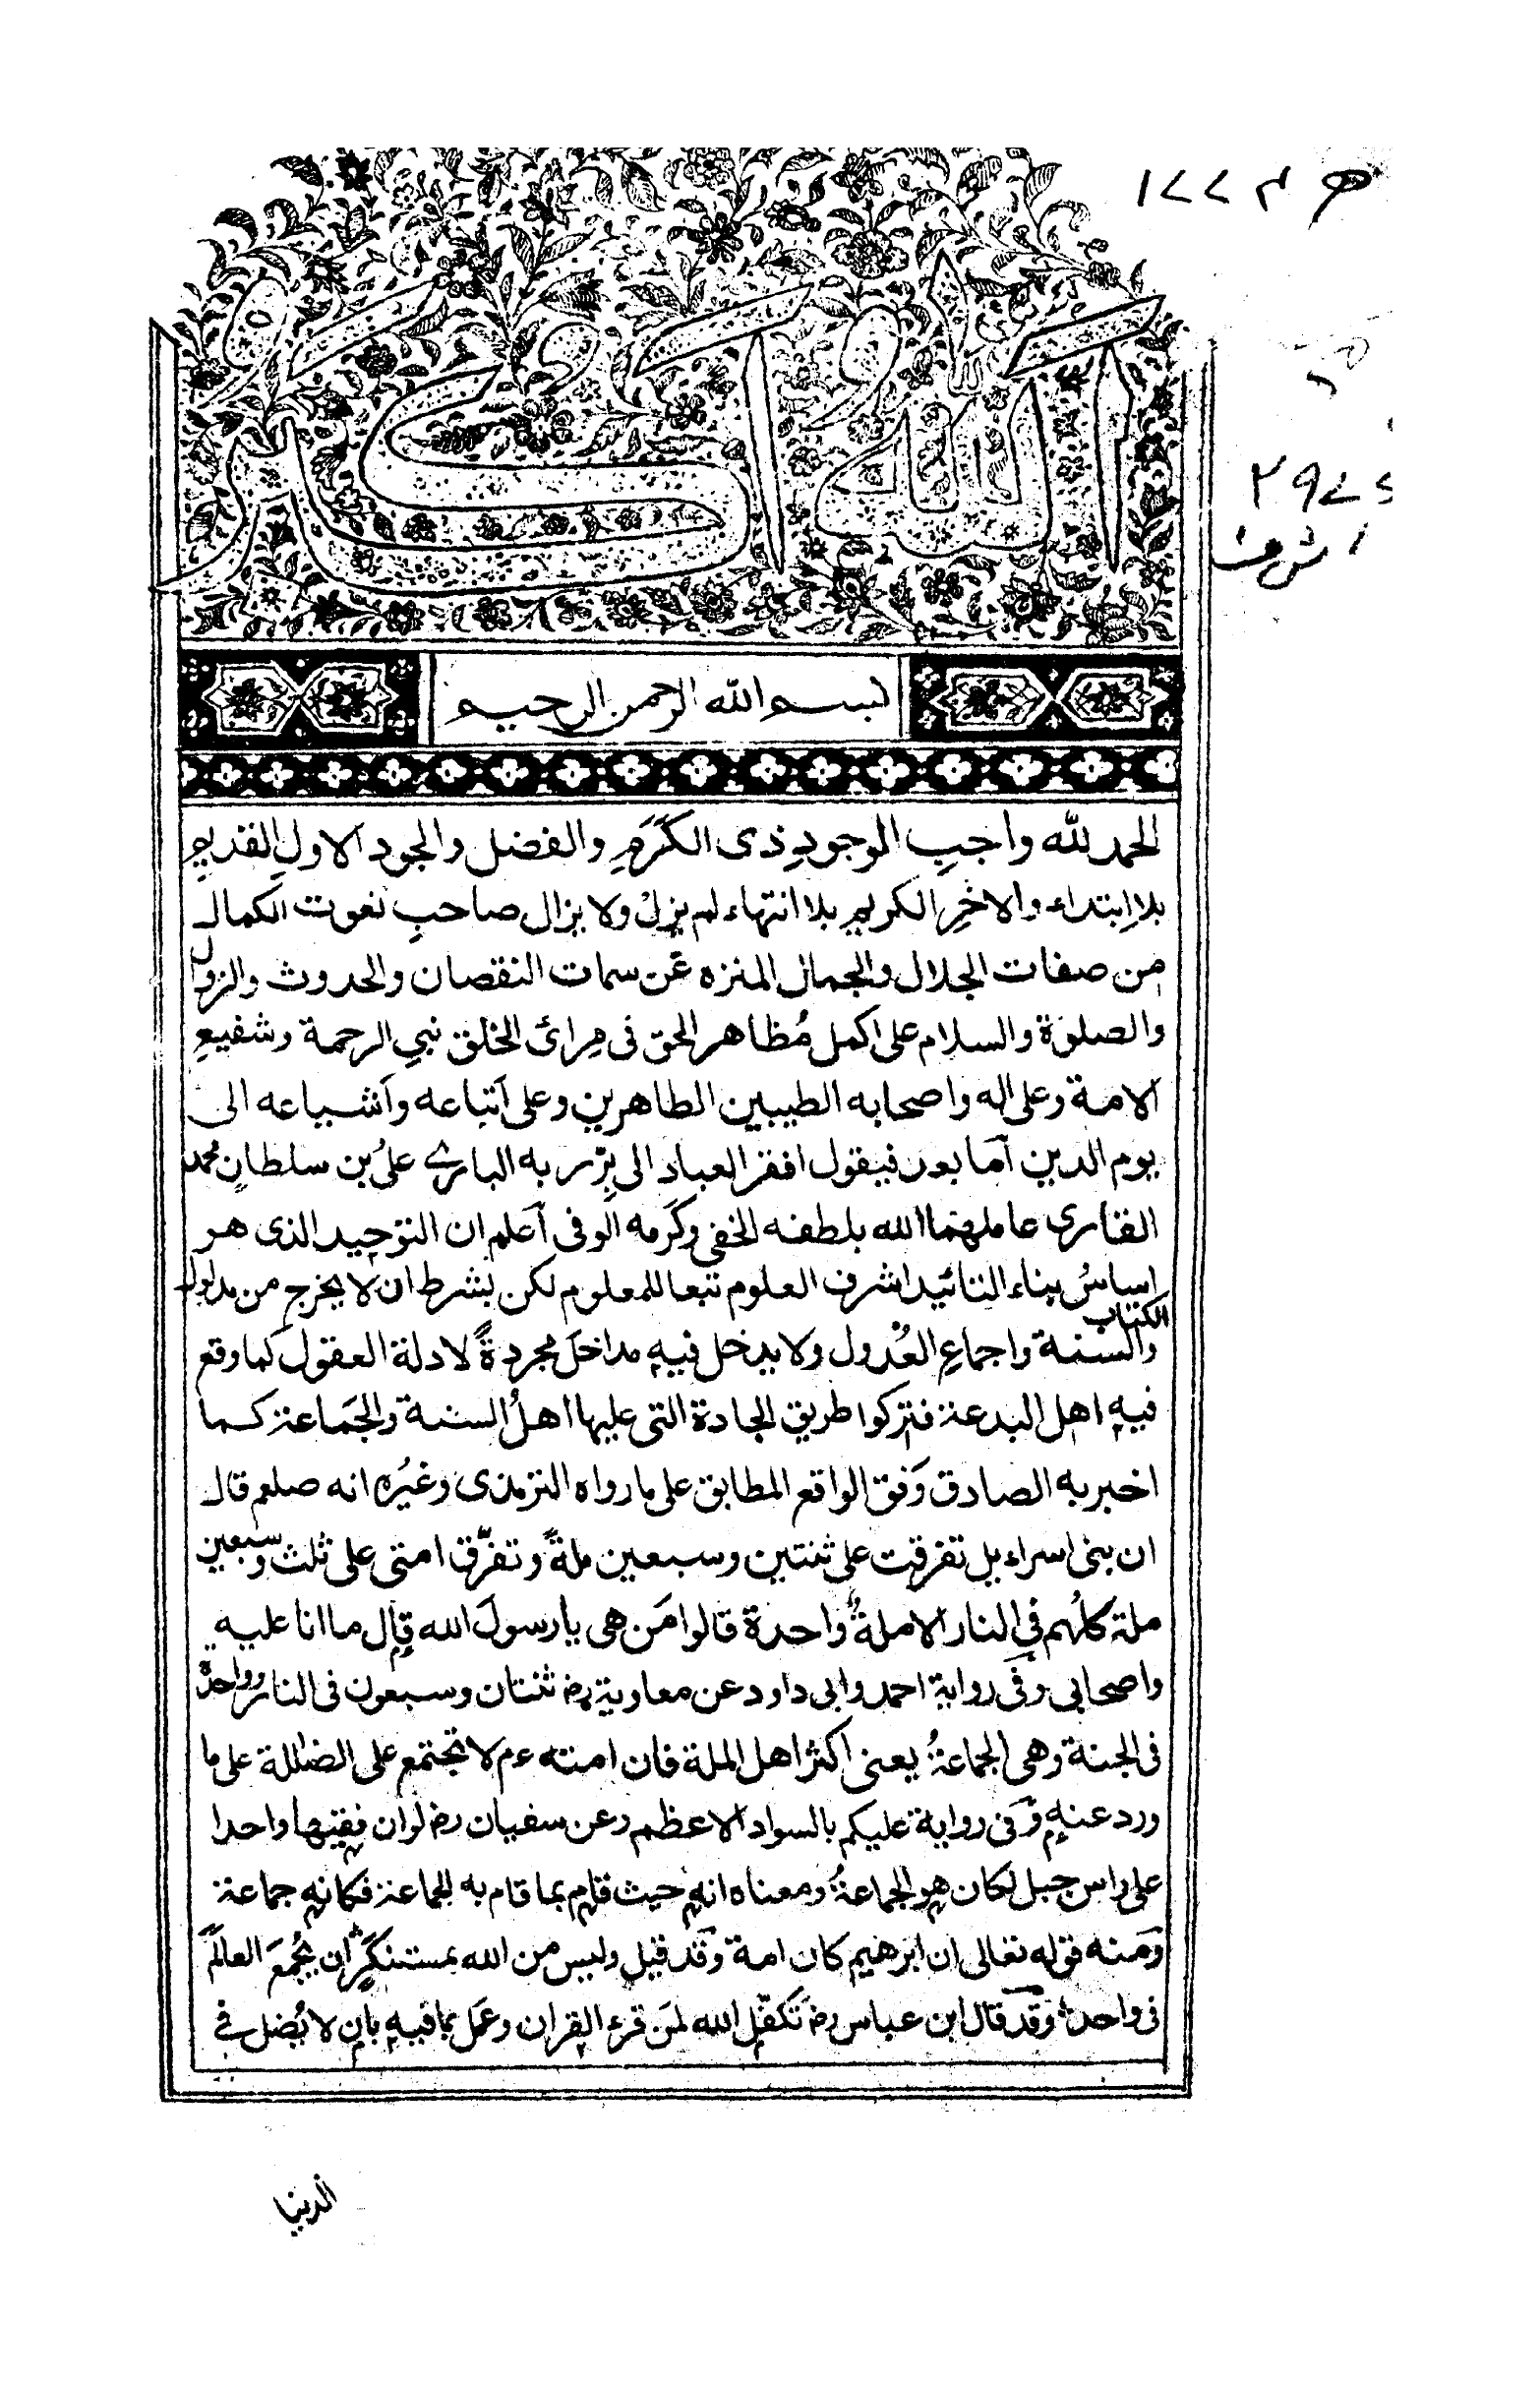 الله اكبر
بسم الله الرحمن الرحيم
الحمد لله واجبِ الوجودِ ذى الكَرَمِ والفضل والجود الاولِ القديمِ
بلا اِبتداء والاخِرِ الكريم بلا انتهاء لم يزلْ ولا يزال صاحبِ نعوت الكمال
من صفات الجلال والجمال المنزه عَن سمات النقصان والحدوث والزوال
والصلوة والسلام على اكمل مُظاهر الحق فى مِرائى الخلق نبىِ الرحمة وشفيعِ
الامة وعلى اله واصحابه الطيبين الطاهرين وعلى اَتباعه واَشياعه الى
يوم الدين اَما بعد فيقول افقر العباد الى بِرّ ربه البارى علىُ بن سلطانِ محمد
القارى عاملهما الله بلطفه الخفى وكَرَمه الوفى اَعلم ان التوحيد الذى هو
اساسُ بناء التائيد اشرف العلوم تبعا للمعلوم لكن بشرط ان لا يخرج من مدلول
الكتاب
والسنة واجماعِ العُدول ولا يدخل فيه مداخلَ مجردةً لادلة العقول كما وقع
فيه اهل البدعة فتركوا طريق الجادة التى عليها اهلُ السنة والجَماعة كما
اخبر به الصادق وَفق الواقع المطابق على ما رواه الترمذى وغيُره انه صلعم قال
ان بنى اسراءيل تفرقت على ثنتين وسبعين ملةً وتفرّق امتى على ثلث وسبعين
ملة كلُهم فى النار الا ملةً واحدة قالوا مَن هى يا رسولَ الله قال ما انا عليه
واصحابى وفى رواية احمد وابى داود عن معاوية رض ثنتان وسبعون فى النار وواحدة
فى الجنة وهى الجماعةُ يعنى اكثر اهل الملة فان امته عم لا تجتمع على الضلالة على ما
ورد عنه وفى رواية عليكم بالسواد الاعظم وعن سفيان رض لو ان فقيها واحدا
على راس جبل لكان هو الجماعةُ ومعناه انه حيث قام بما قام به الجماعة فكانه جماعة
ومنه قوله تعالى ان ابرهيم كان امة وقد قيل وليس من الله بمستنكَرٍ ان يَجُمعَ العالَمَ
فى واحد وقد قال ابن عباس رض تَكفّل الله لمَن قرء القران وعَمِل بما فيه بان لا يُضل فى
الدنيا